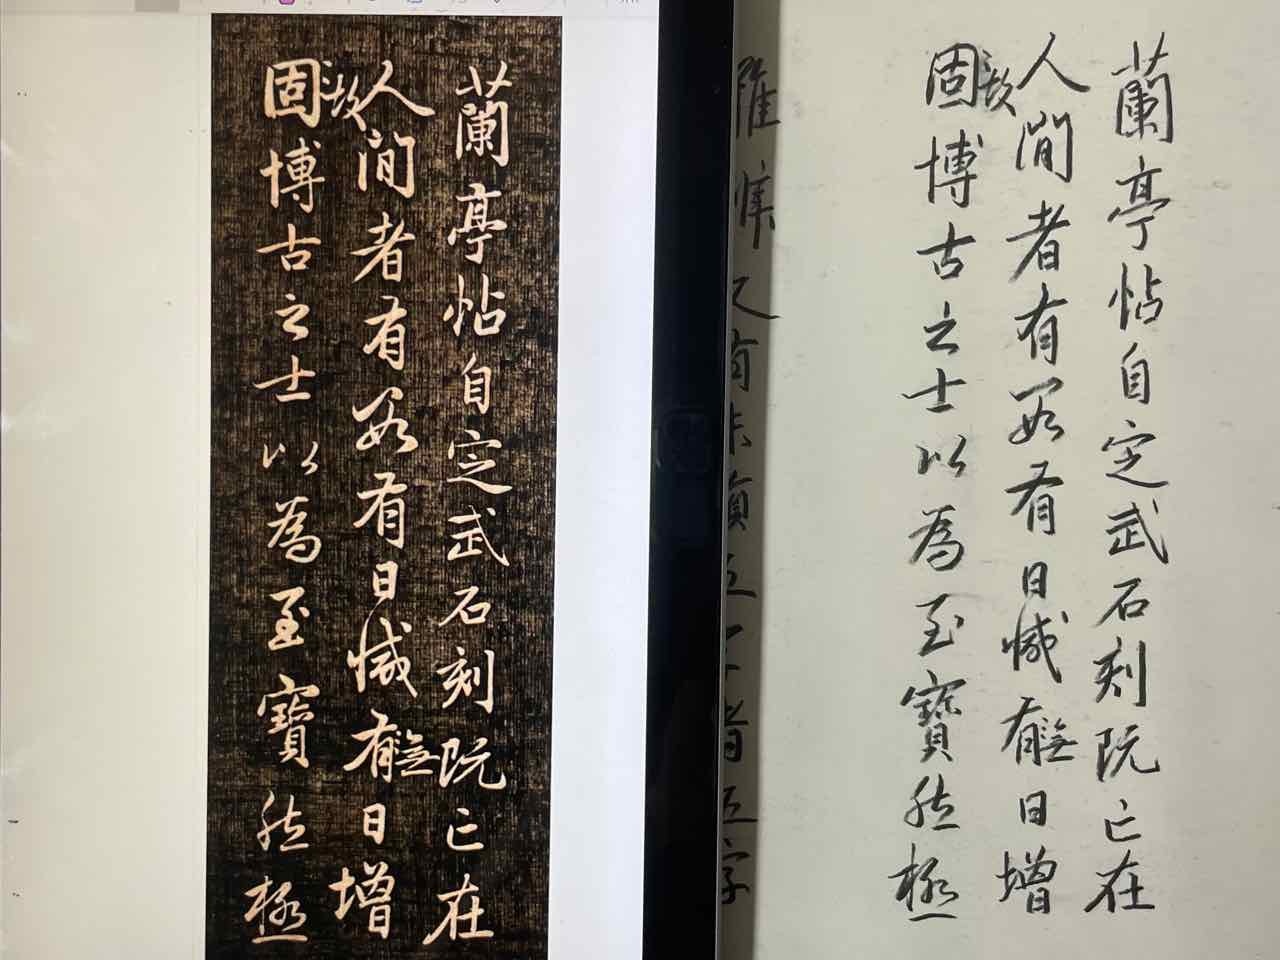 蘭亭帖自定武石刻既亡在
人間者有數有日減有無日增
故固博古之士以為至寶然極
蘭亭帖自定武石刻既亡在
人間者有數有日減有無日增
故固博古之士以為至寶然極